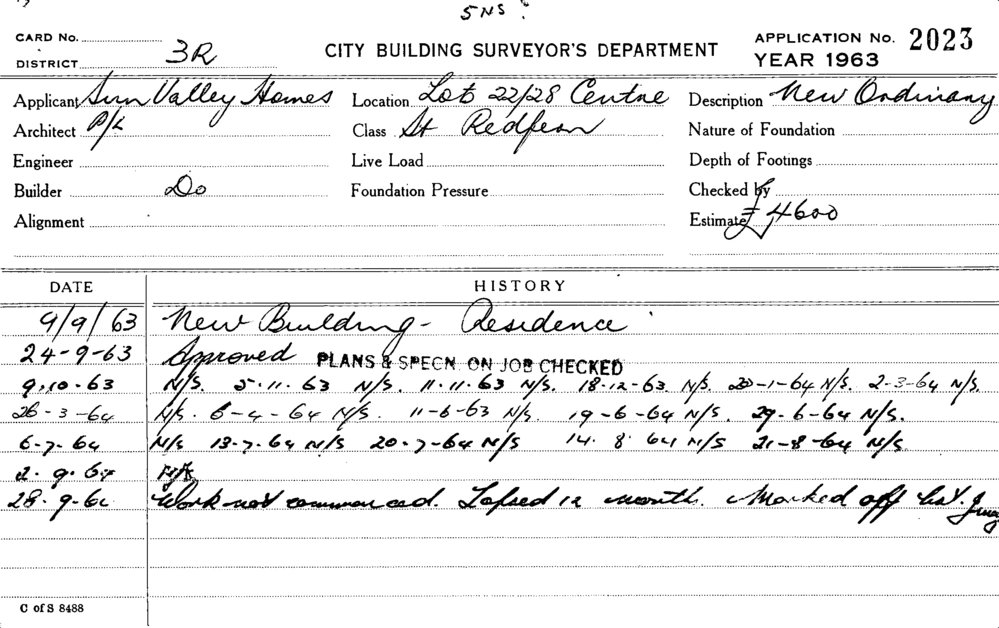 5NS.
CARD No.
DISTRICT 3R
CITY BUILDING SURVEYOR'S DEPARTMENT
APPLICATION No. 2023
YEAR 1963
Applicant Sun Valley Homes Location Lot 22/28 Centre Description New Ordinary
Architect P/L Class St Redfern Nature of Foundation
Engineer Live Load Depth of Footings
Builder Do Foundation Pressure Checked by
Alignment Estimate £4600
DATE HISTORY
9/9/63 New Building - Residence
24-9-63 Approved PLANS & SPECN. ON JOB CHECKED
9.10.63 N/S. 5.11.63 N/S. 11.11.63 N/S. 18.12-63. N/S. 20-1-64 N/S. 2-3-64 N/S.
26-3-64 N/S. 6-4-64 N/S. 11-6-63 N/S. 19-6-64 N/S. 29-6-64 N/S.
6-7-64 N/S 13-7-64 N/S 20-7-64 N/S 14.8.64 N/S 21-8-64 N/S
2.9.64 N/S
28.9.64 Work not commenced. Lapsed 12 month. Marked off list.
C of S 8488